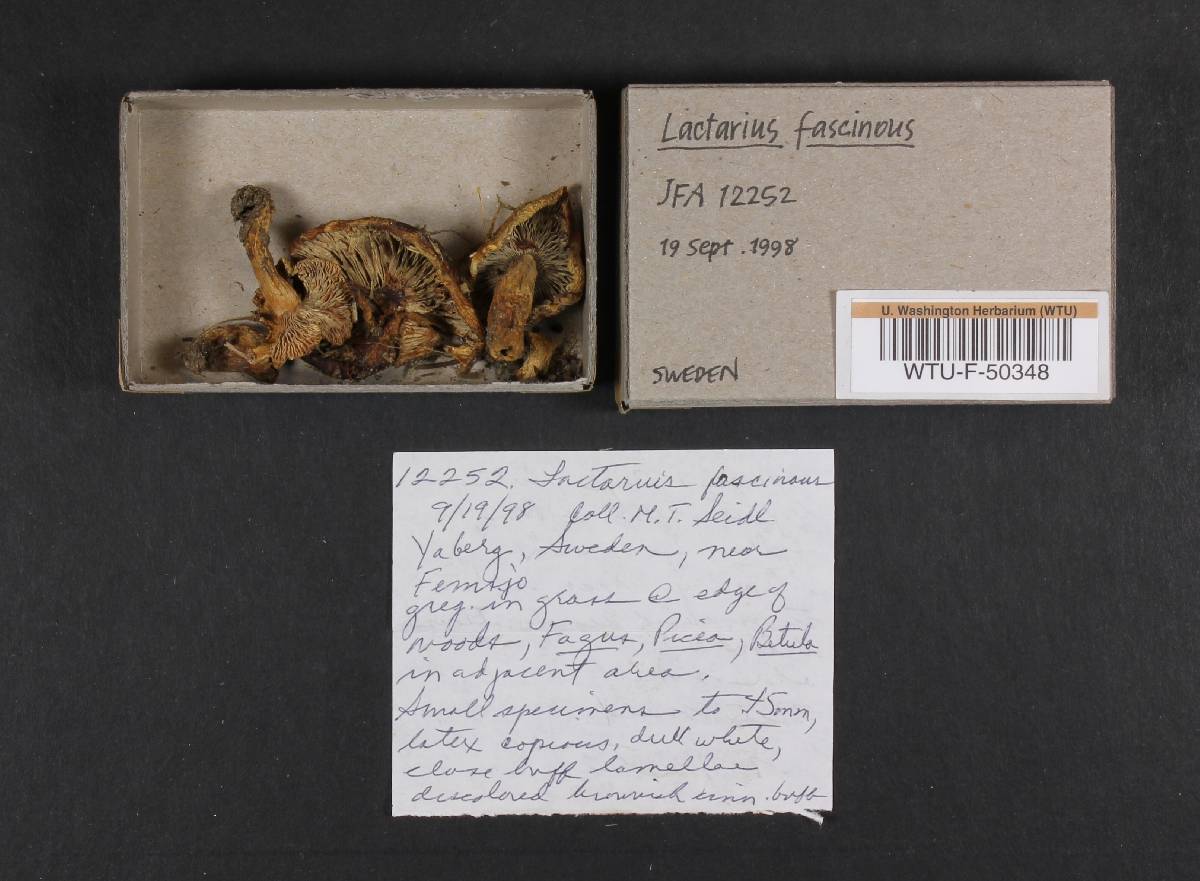 Lactarius fascinous
JFA 12252
19 Sept. 1998
SWEDEN
U. Washington Herbarium (WTU)
WTU-F-50348
12252. Lactarius fascinous
9/19/98 Coll. M.T. Seidl
Yaberg, Sweden, near
Femsjo
greg. in grass @ edge of
woods, Fagus, Picea, Betula
in adjacent area.
Small specimens to 45mm,
latex copious, dull white,
close buff lamellae
discolored brownish cinn. buff